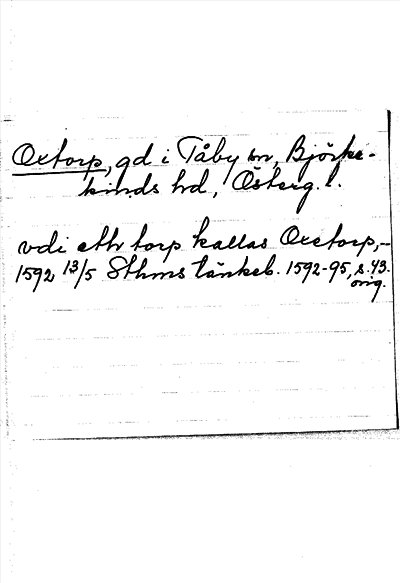 Oxtorp, gd i Tåby sn, Björke-
kinds hd, Österg. l.
vdi ethr torp kallas Oxetorp,-
1592 13/5 Sthms tänkeb. 1592-95, s. 43.
orig.